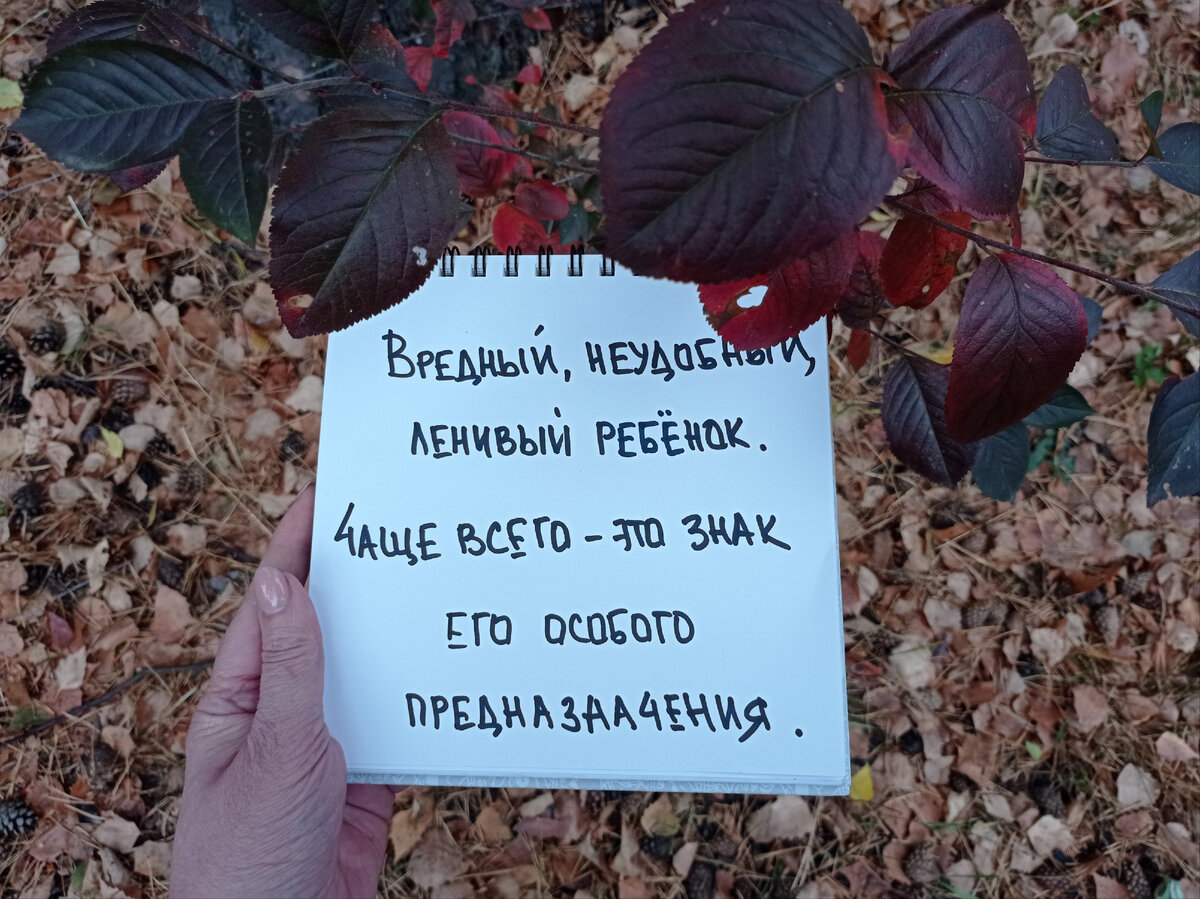 Вредный, неудобный,
ленивый ребёнок.
Чаще всего - это знак
его особого
предназначения.